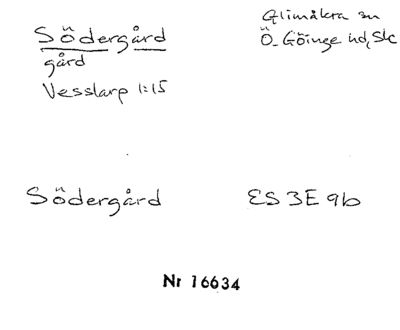 Södergård
gård
Vesslarp 1:15
Glimåkra sn
Ö. Göinge hd, Sk
Södergård
ES 3E 9b
Nr 16634